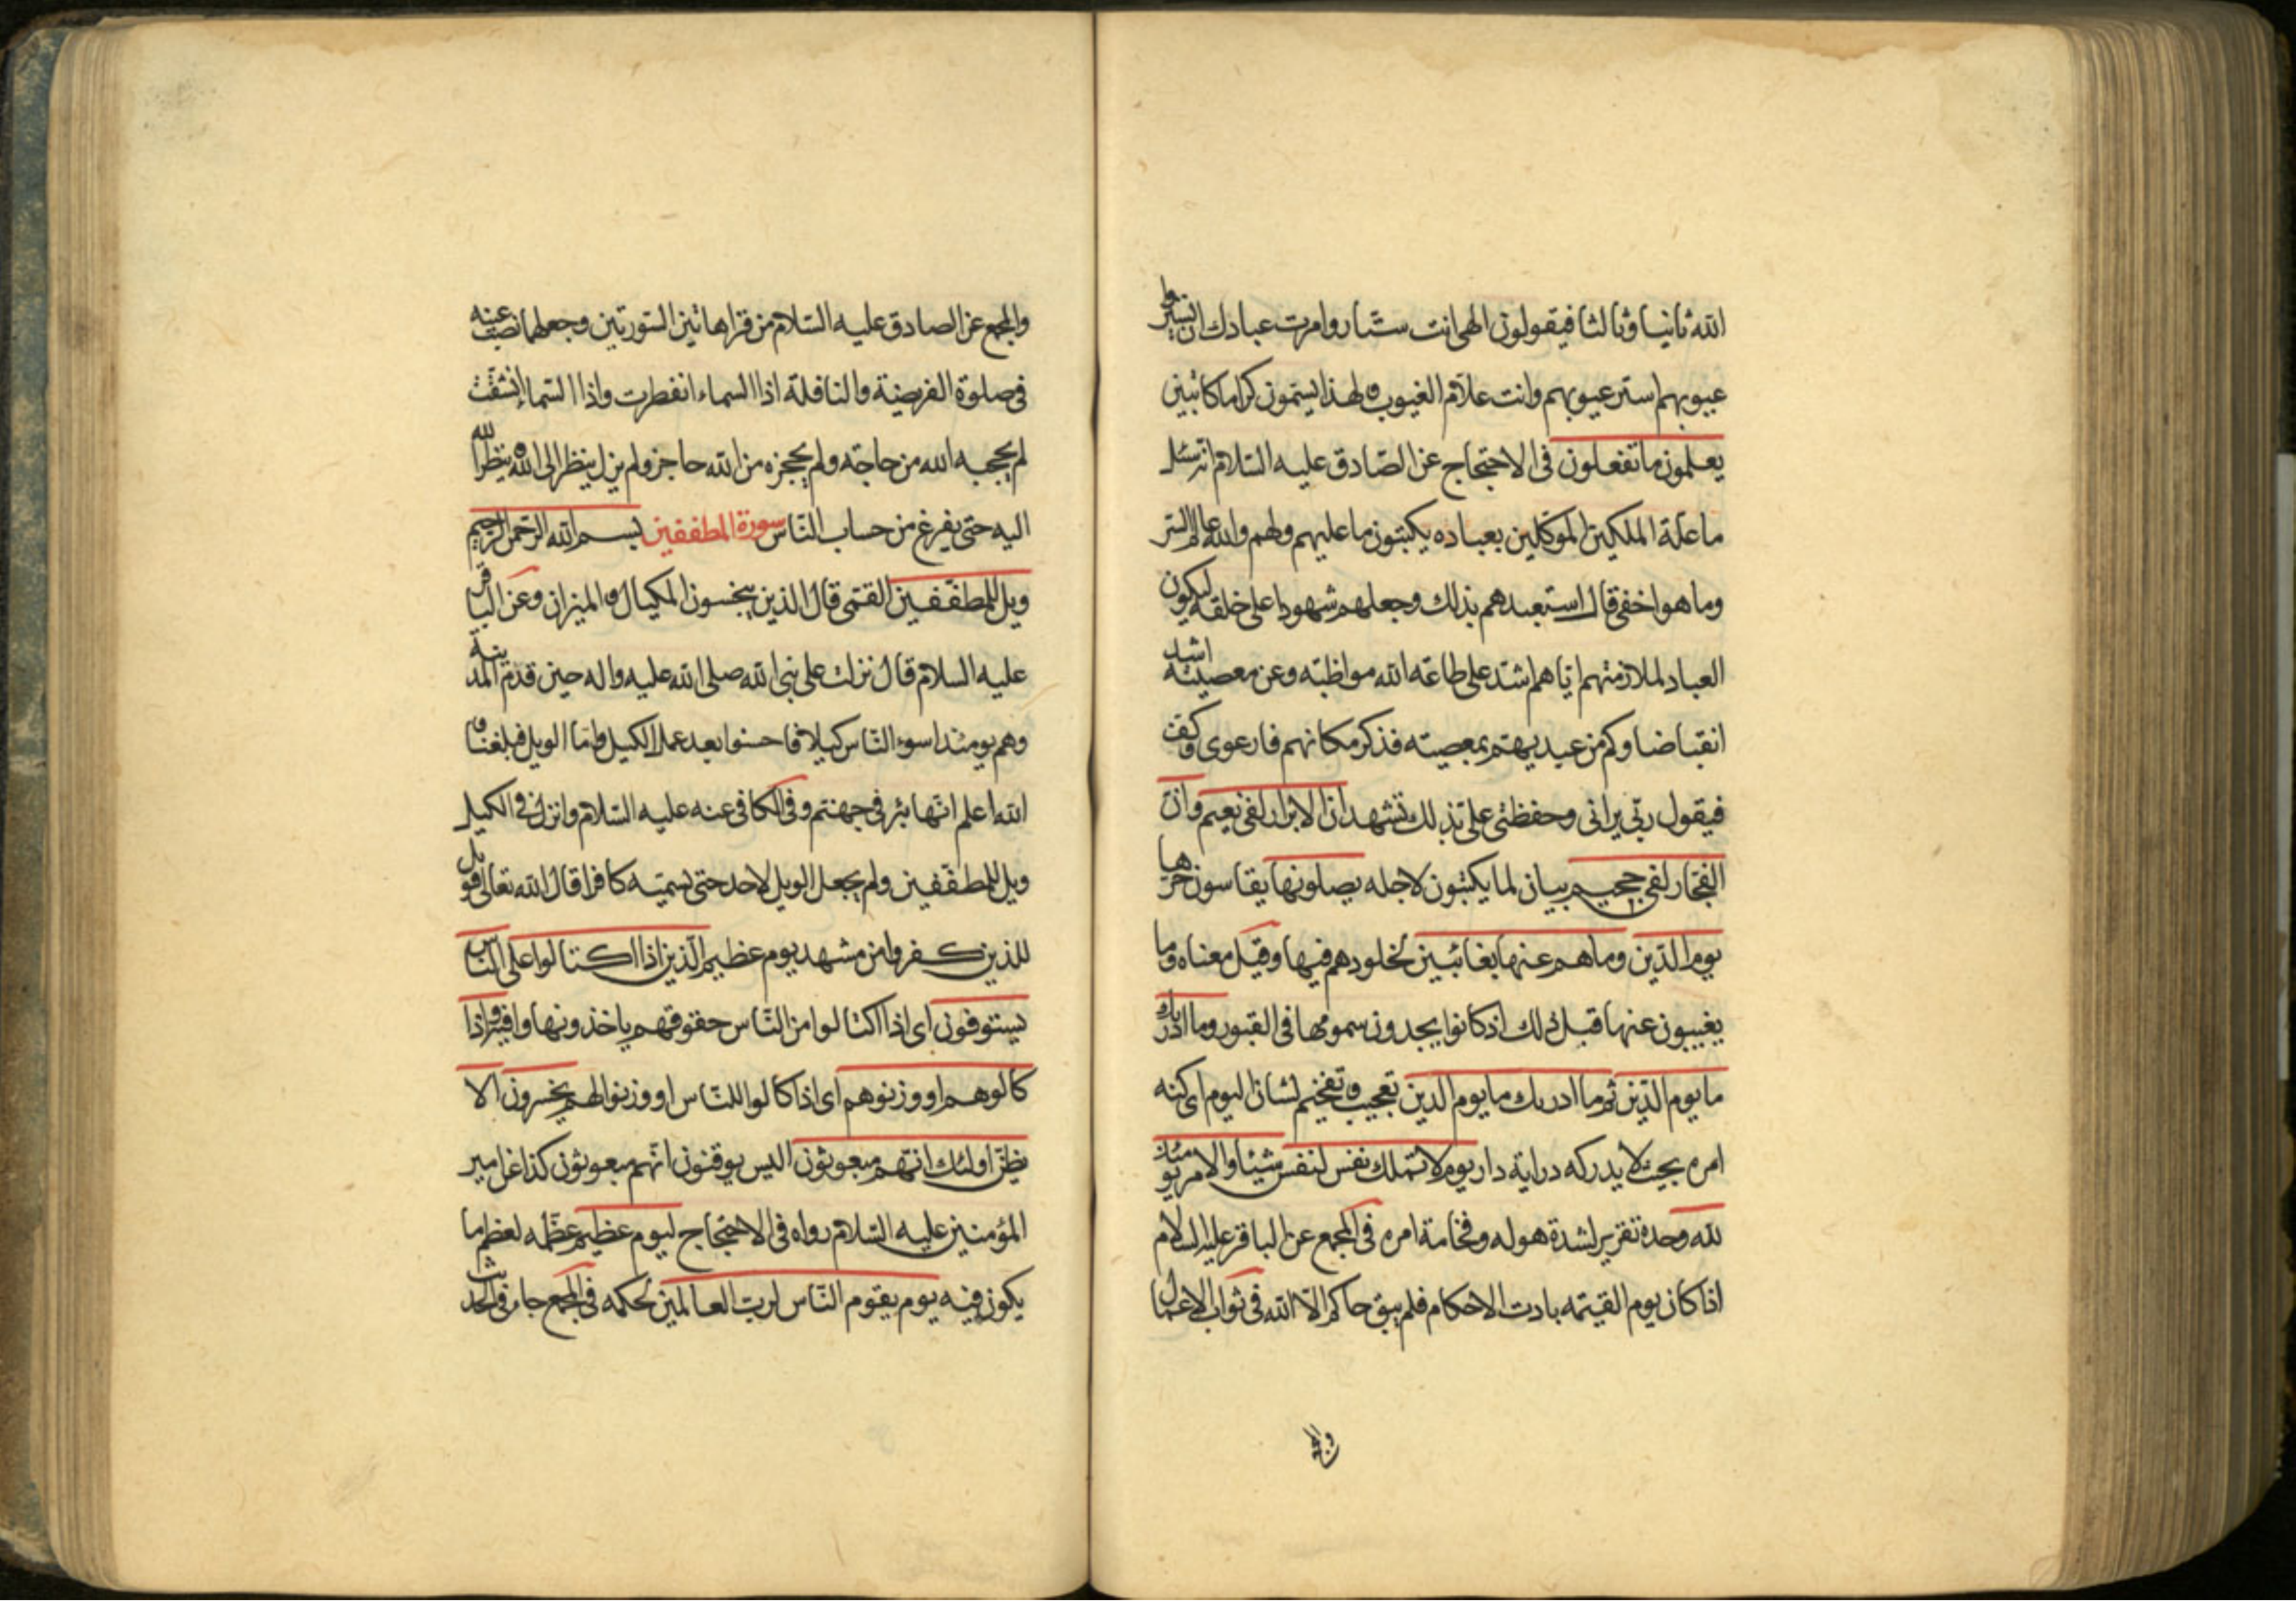 الله ثانيا وثالثا فيقولون الهى انت ستار وامرت عبادك ان يستروا
عيوبهم استر عيوبهم وانت علام الغيوب ولهذا يسمون كراما كاتبين
يعلمون ما تفعلون فى الاحتجاج عن الصّادق عليه السّلام انه سئل
ما علّة الملكين الموكلين بعباده يكتبون ما عليهم ولهم والله عالم السّر
وما هو اخفى قال استعبدهم بذلك وجعلهم شهودا على خلقه ليكون
العباد لملازمتهم ايّاهم اشدّ على طاعة الله مواظبة وعن معصيته اشد
انقباضا وكم من عبد يهمّ بمعصيته فذكر مكانهم فارعوى وكفّ
فيقول ربّى يرانى وحفظتى علىّ بذلك تشهد ان الابرار لفى نعيم وانّ
الفجّار لفى جحيم بيان لما يكتبون لاجله يصلونها يقاسون حرها
يوم الدّين وما هم عنها بغائبين لخلودهم فيها وقيل معناه وما
يغيبون عنها قبل ذلك اذ كانوا يجدون سمومها فى القبور وما ادريك
ما يوم الدّين ثم ما ادريك ما يوم الدين تعجيب وتفخيم لشان اليوم اى كنه
امره بحيث لا يدركه دراية دار يوم لا تملك نفس لنفس شيئا والامر يومئذ
لله وحده تقرير لشدة هوله وفخامة امره فى المجمع عن الباقر عليه السلام
اذا كان يوم القيمه بادت الاحكام فلم يبق حاكم الّا الله فى ثواب الاعمال
والمجمع عن الصادق عليه السّلام من قرا هاتين السّورتين وجعلهما نصب عينه
فى صلوة الفريضة والنافلة اذا السماء انفطرت واذا السّماء انشقّت
لم يحجبه الله من حاجته ولم يحجزه من الله حاجز ولم يزل ينظر الى الله وينظر الله
اليه حتى يفرغ من حساب النّاس سورة المطففين بسم الله الرّحمن الرّحيم
ويل للمطفّفين القمّى قال الذين يبخسون المكيال والميزان وعن الباقر
عليه السلام قال نزلت على نبى الله صلى الله عليه واله حين قدم المدينة
وهم يومئذ اسوء النّاس كيلا فاحسنوا بعد عمل الكيل وامّا الويل فبلغنا و
الله اعلم انّها بئر فى جهنّم وفى الكافى عنه عليه السّلام وانزل فى الكيل
ويل للمطفّفين ولم يجعل الويل لاحد حتى يسمّيه كافرا قال الله تعالى فويل
للذين كفروا من مشهد يوم عظيم الّذين اذا اكتالوا على النّاس
يستوفون اى اذا اكتالوا من النّاس حقوقهم ياخذونها وافية واذا
كالوهم او وزنوهم اى اذا كالوا للنّاس او وزنوا لهم يخسرون الا
يظنّ اولئك انّهم مبعوثون اليس يوقنون انّهم مبعوثون كذا عن امير
المؤمنين عليه السّلام رواه فى الاحتجاج ليوم عظيم عظّمه لعظم ما
يكون فيه يوم يقوم النّاس لربّ العالمين لحكمه فى المجمع جاء فى الحديث